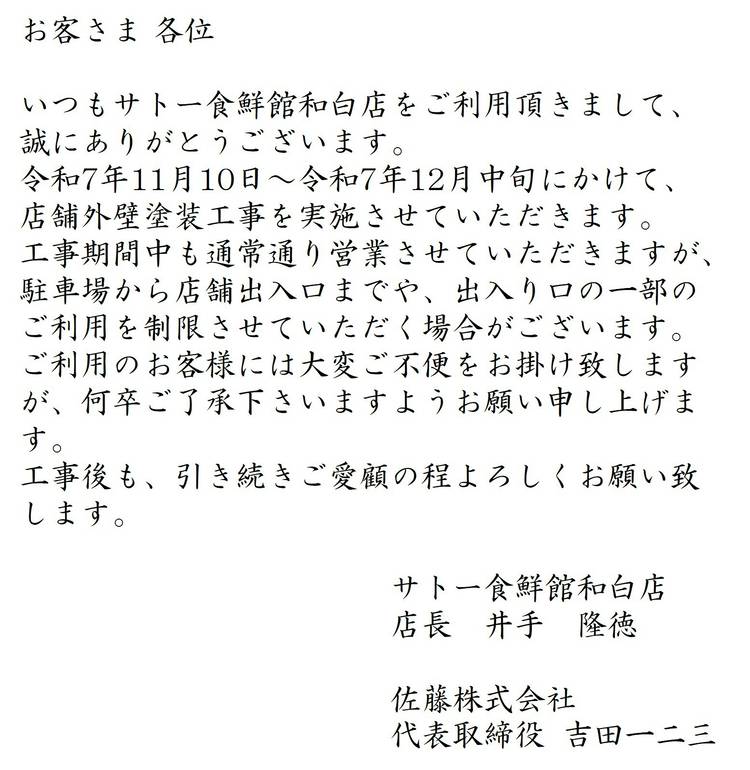 お客さま 各位
いつもサトー食鮮館和白店をご利用頂きまして、
誠にありがとうございます。
令和7年11月10日～令和7年12月中旬にかけて、
店舗外壁塗装工事を実施させていただきます。
工事期間中も通常通り営業させていただきますが、
駐車場から店舗出入口までや、出入り口の一部の
ご利用を制限させていただく場合がございます。
ご利用のお客様には大変ご不便をお掛け致します
が、何卒ご了承下さいますようお願い申し上げま
す。
工事後も、引き続きご愛顧の程よろしくお願い致
します。
サトー食鮮館和白店
店長　井手　隆徳
佐藤株式会社
代表取締役 吉田一二三